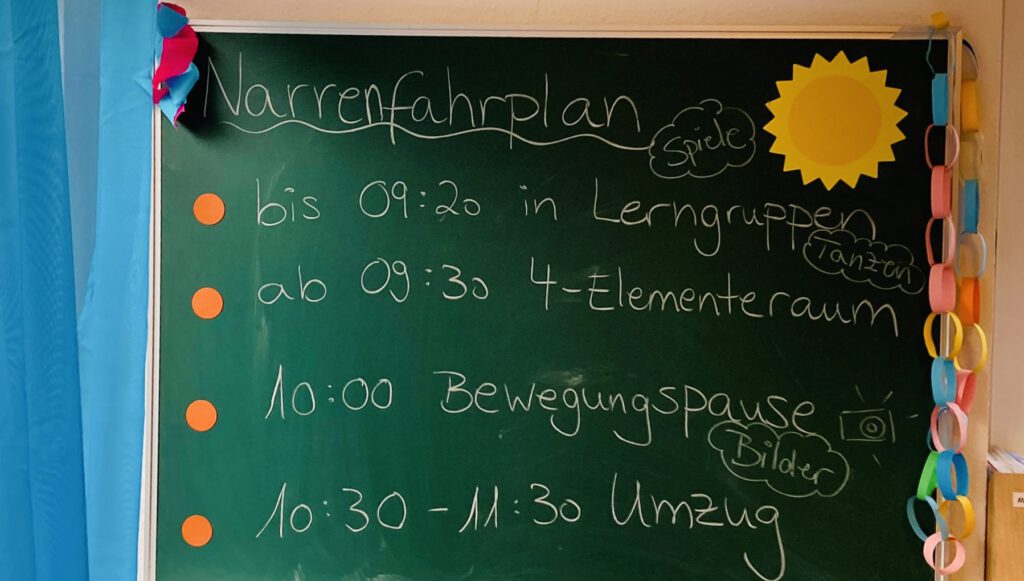 Narrenfahrplan
Spiele
bis 09:20 in Lerngruppen
Tanzen
ab 09:30 4-Elementeraum
10:00 Bewegungspause
Bilder
10:30 - 11:30 Umzug